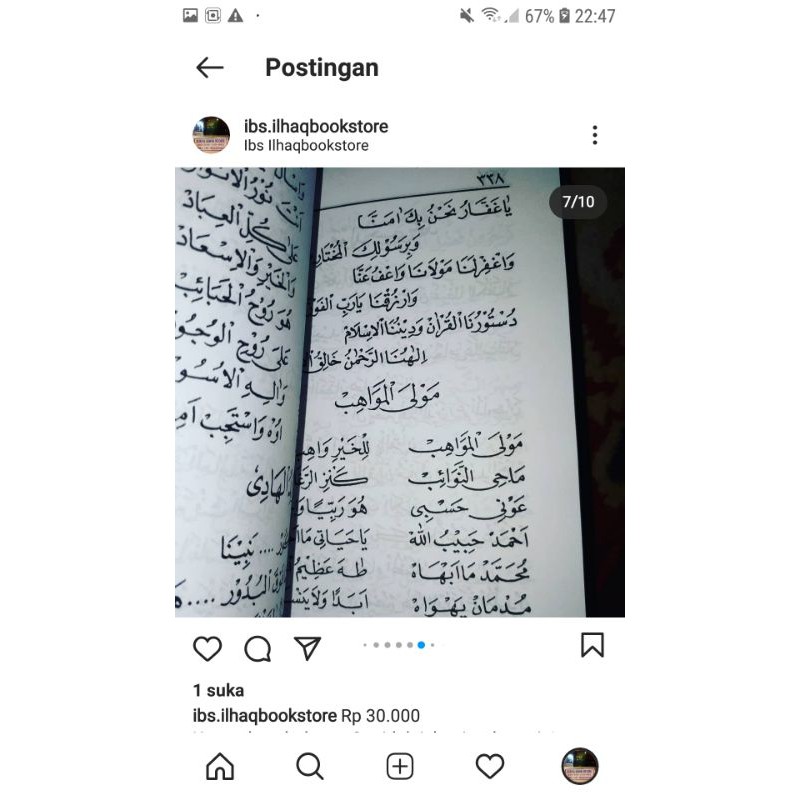 67% 22:47
Postingan
ibs.ilhaqbookstore
Ibs Ilhaqbookstore
7/10
٣٣٨
يَا غَفَّارُ نَحْنُ بِكَ اٰمَنَّا
وَبِرَسُوْلِكَ الْمُخْتَارِ
وَاغْفِرْلَنَا مَوْلَانَا وَاعْفُ عَنَّا
وَارْزُقْنَا يَارَبِّ
دُسْتُوْرُنَا الْقُرْاٰنْ وَدِيْنُنَا الْاِسْلَامْ
اِلٰهُنَا الرَّحْمٰنُ خَالِقُ
مَوْلَى الْمَوَاهِبْ
مَوْلَى الْمَوَاهِبْ لِلْخَيْرِ وَاهِبْ
مَاحِى النَّوَائِبْ كَنْزِ
عَوْنِى حَسْبِى هُوَ رَبِّيْ
اَحْمَدْ حَبِيْبُ اللّٰه يَاحَيَاتِى
مُحَمَّدْ مَا اَبْهَاهْ طٰهَ عَظِيْمُ
مُدْمَانْ يَهْوَاهْ اَبَدًا وَلَا
اَنْتَ نُوْرُ
عَلَى كُلِّ الْعِبَادْ
وَالْخَيْرِ وَالْاِسْعَادْ
هُوَ رُوْحُ الْحَبَائِبْ
عَلَى رُوْحِ
وَاٰلِهِ
وَاسْتَجِبْ
الْهَادِىْ
نَبِيْنَا
الْبُدُوْرْ
1 suka
ibs.ilhaqbookstore Rp 30.000